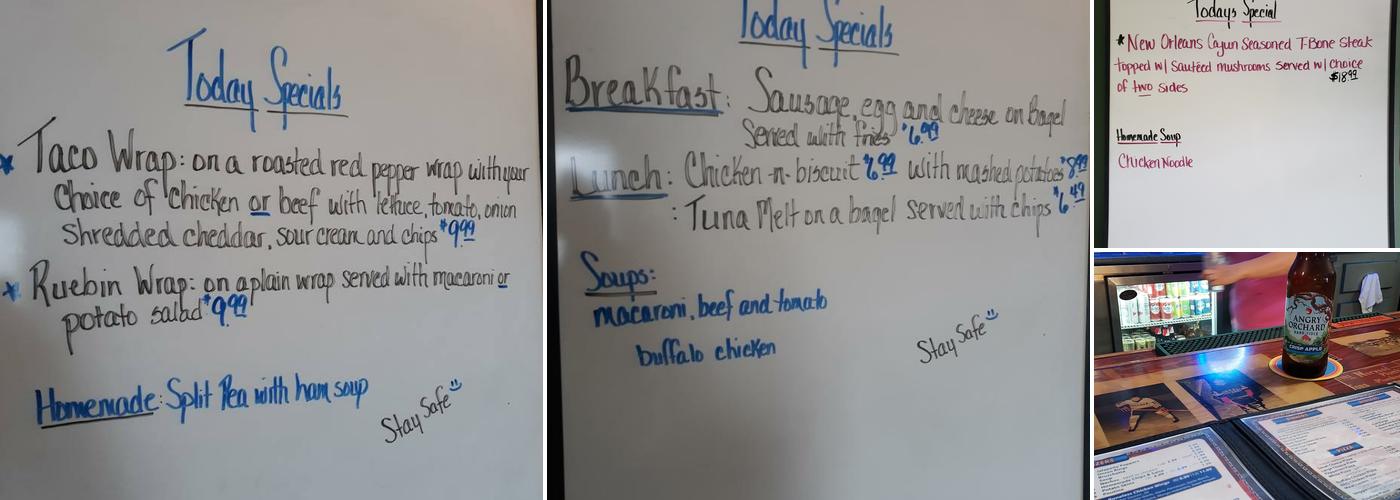 Today Specials
* Taco Wrap: on a roasted red pepper wrap with your
Choice of chicken or beef with lettuce, tomato, onion
Shredded cheddar, sour cream and chips $9.99
* Ruebin Wrap: on a plain wrap served with macaroni or
potato salad $9.99
Homemade: Split Pea with ham soup
Stay Safe
Today Specials
Breakfast: Sausage, egg and cheese on Bagel
Served with fries $6.99
Lunch: Chicken-n-biscuit $6.99 with mashed potatoes $8.99
: Tuna Melt on a bagel served with chips $6.49
Soups:
macaroni, beef and tomato
buffalo chicken
Stay Safe
Todays Special
* New Orleans Cajun Seasoned T-Bone Steak
topped w/ Sautéed mushrooms served w/ choice
of two sides $18.99
Homemade Soup
Chicken Noodle
ANGRY
ORCHARD
HARD CIDER
CRISP APPLE
PIZZA